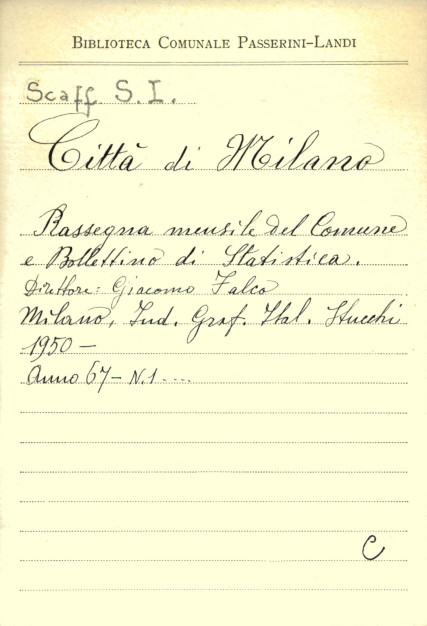 BIBLIOTECA COMUNALE PASSERINI-LANDI
Scaff S. I.
Città di Milano
Rassegna mensile del Comune
e Bollettino di Statistica.
Direttore: Giacomo Falco
Milano, Ind. Graf. Ital. Stucchi
1950 -
Anno 67 - N. 1 ....
C